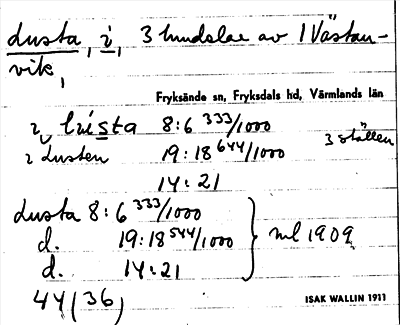 Lusta, i, 3 hundelar av 1 Västan-
vik,
Fryksände sn, Fryksdals hd, Värmlands län
i lùsta 8:6 333/1000
i Lusten 19:18 644/1000 3 ställen
14:21
Lusta 8:6 333/1000
d. 19:18 544/1000 ml 1909
d. 14:21
44 (36)
ISAK WALLIN 1911